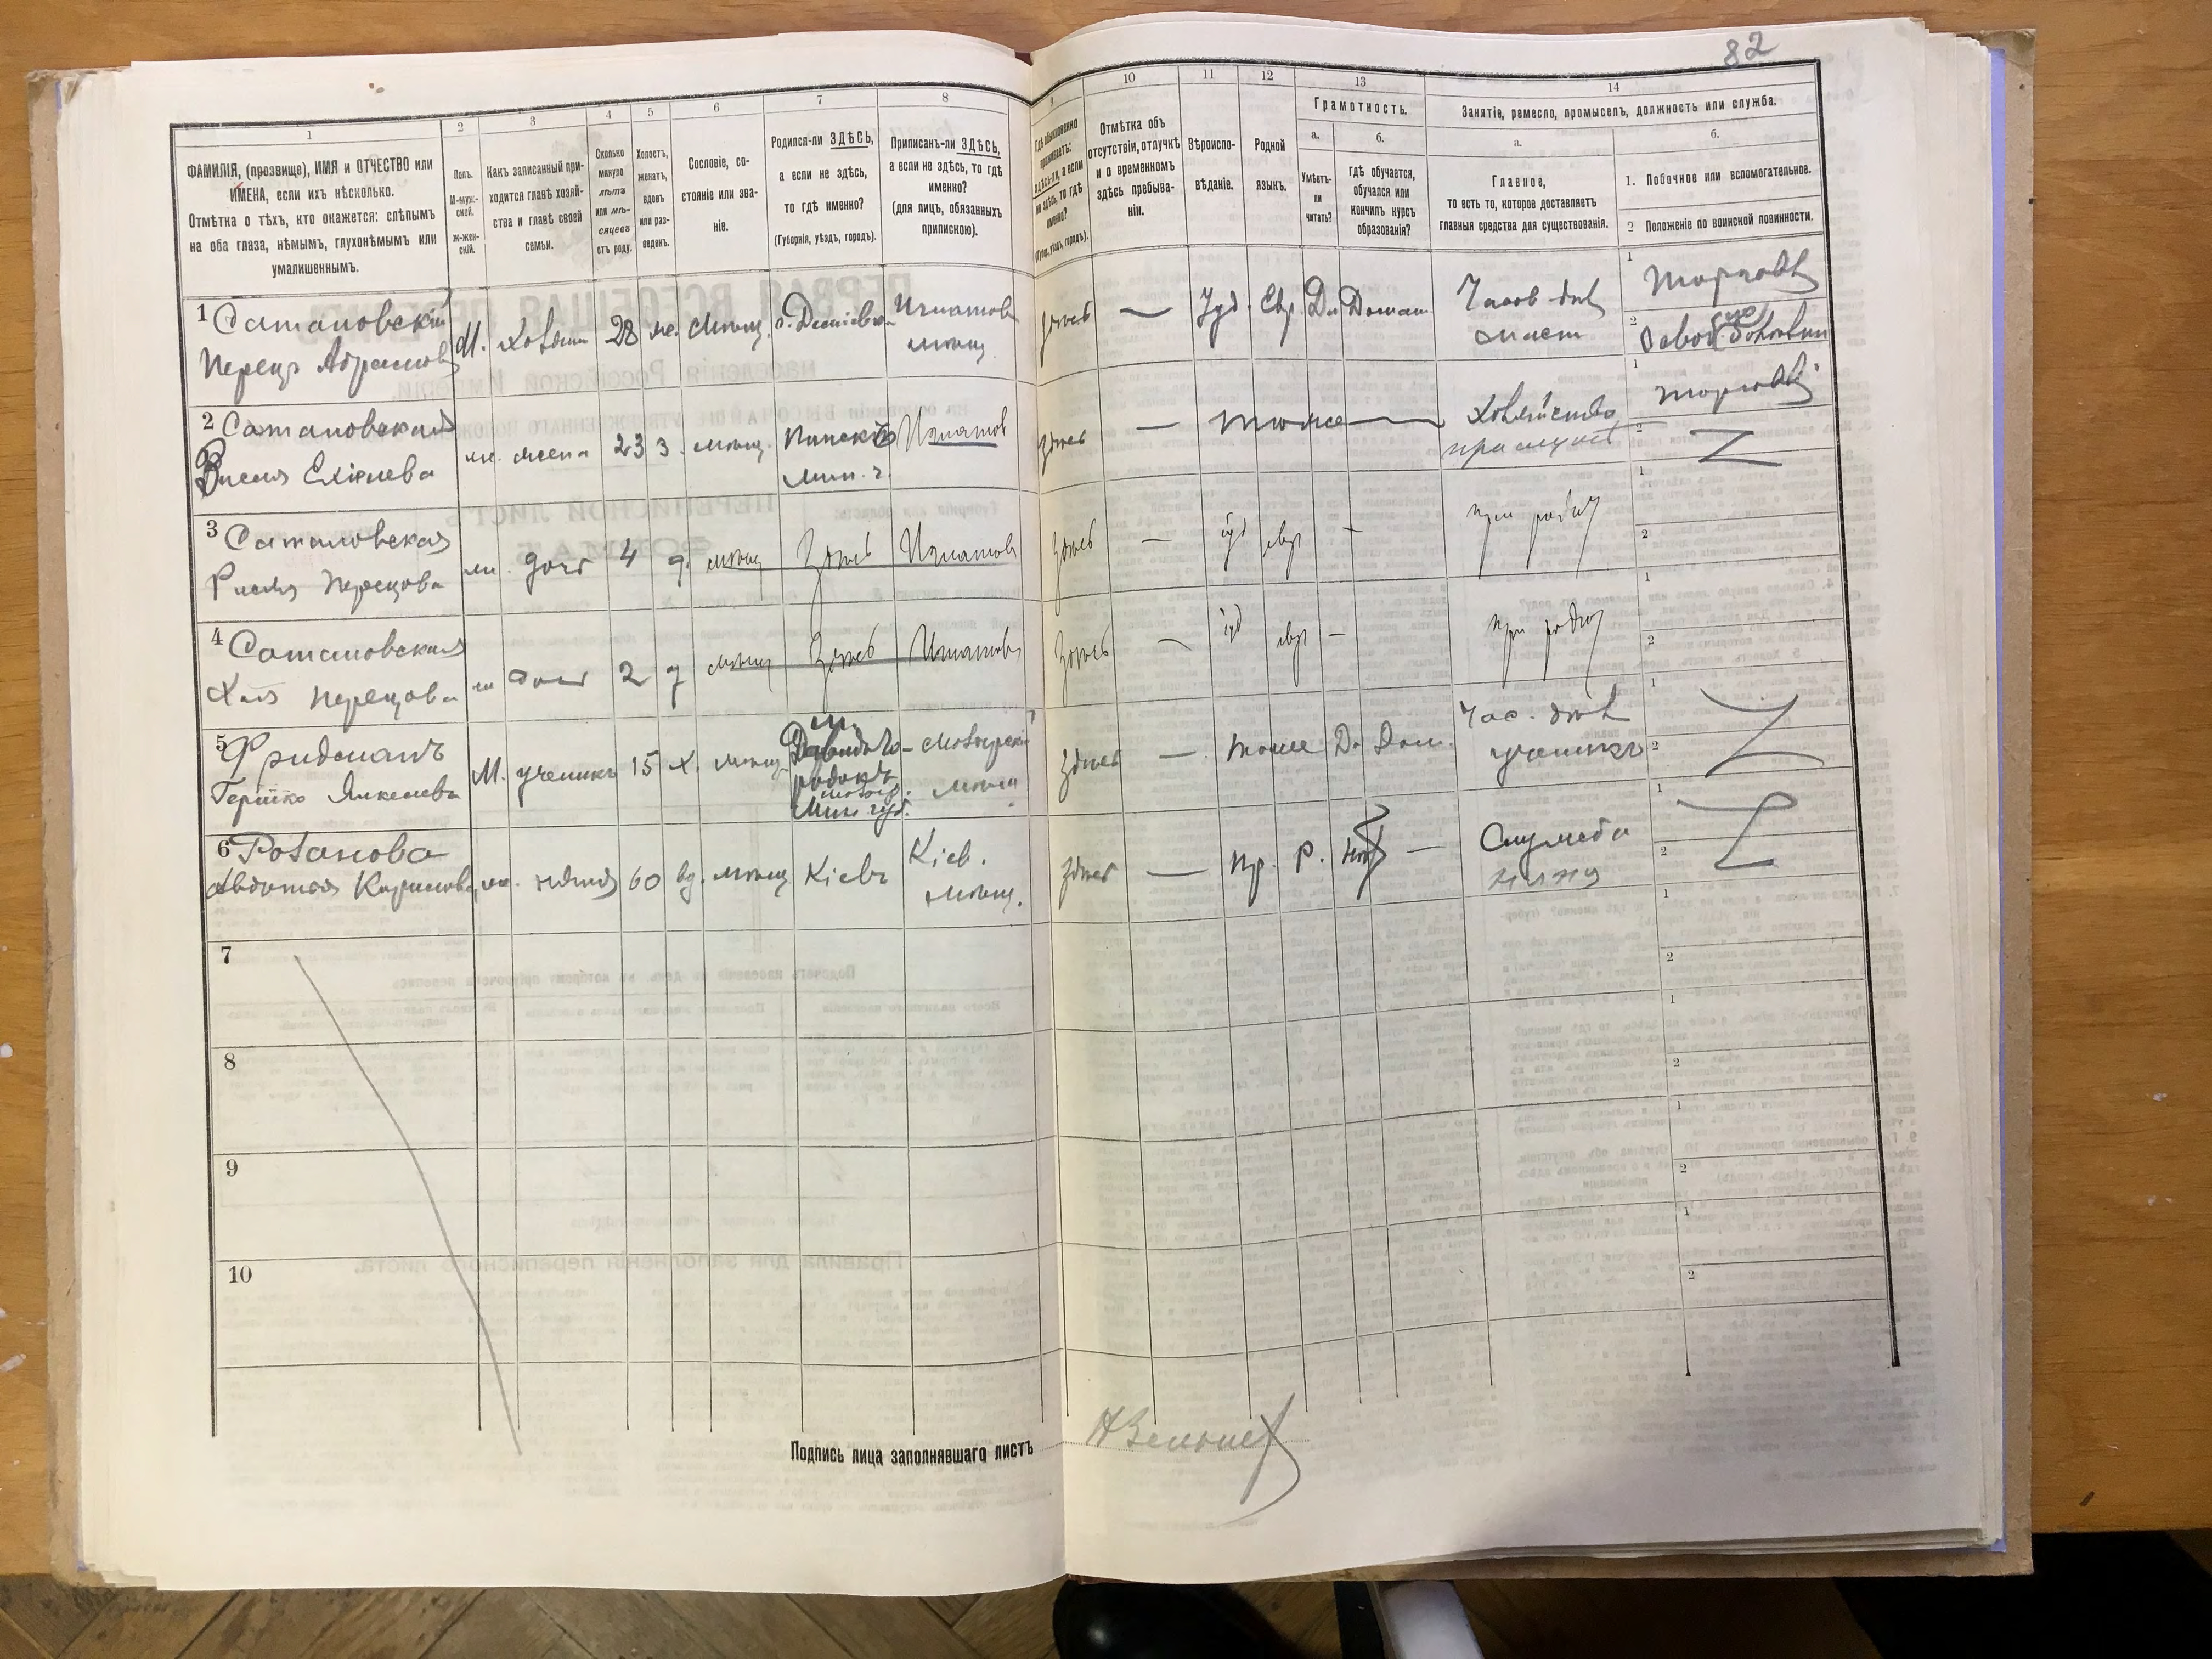 82
1
2
3
4
5
6
7
8
9
10
11
12
13
14
ФАМИЛІЯ, (прозвище), ИМЯ и ОТЧЕСТВО или
ИМЕНА, если ихъ нѣсколько.
Отмѣтка о тѣхъ, кто окажется: слѣпымъ
на оба глаза, нѣмымъ, глухонѣмымъ или
умалишеннымъ.
Полъ.
М-муж-
ской.
Ж-жен-
скій.
Какъ записанный при-
ходится главѣ хозяй-
ства и главѣ своей
семьи.
Сколько
минуло
лѣтъ
или мѣ-
сяцевъ
отъ роду.
Холостъ,
женатъ,
вдовъ
или раз-
веденъ.
Сословіе, со-
стояніе или зва-
ніе.
Родился-ли ЗДѢСЬ,
а если не здѣсь,
то гдѣ именно?
(Губернія, уѣздъ, городъ).
Приписанъ-ли ЗДѢСЬ,
а если не здѣсь, то гдѣ
именно?
(для лицъ, обязанныхъ
припискою).
Гдѣ обыкновенно
проживаетъ:
здѣсь-ли, а если
не здѣсь, то гдѣ
именно?
(Губ., уѣздъ, городъ).
Отмѣтка объ
отсутствіи, отлучкѣ
и о временномъ
здѣсь пребыва-
ніи.
Вѣроиспо-
вѣданіе.
Родной
языкъ.
Грамотность.
а.
Умѣетъ-
ли
читать?
б.
гдѣ обучается,
обучался или
кончилъ курсъ
образованія?
Занятіе, ремесло, промыселъ, должность или служба.
а.
Главное,
то есть то, которое доставляетъ
главныя средства для существованія.
б.
1. Побочное или вспомогательное.
2 Положеніе по воинской повинности.
1 Сатановскій
Перецъ Абрамов
М. хозяин 28 же. мѣщ. Игнатов
мѣщ.
здѣсь — Іуд. Евр. Да Домаш
Часов. дѣл
1 торговл
2
2 Сатановская
Ехіелева
ж. жена 23 з. мѣщ. Пинскъ Игнатов
Мин. г.
здѣсь — тоже — Хозяйство
при мужѣ
1 торговл
2
3 Сатановская
Рисля Перецова
ж. дочь 4 д. мѣщ Здѣсь Игнатов
здѣсь — іуд евр — при родит
1
2
4 Сатановская
Хая Перецова
ж дочь 2 д мѣщ Здѣсь Игнатов
Здѣсь — іуд евр — при родит
1
2
5 Фридманъ
Гершко Янкелева
М. ученикъ 15 х. мѣщ. м.
Давидъ Го-
родокъ
мозыр.
Мин. губ.
мозырскій
мѣщ
здѣсь — тоже Да Дом. Час. дѣл
ученикъ
1
2
6 Розанова
Авдотья Кирилова
ж. няня 60 вд. мѣщ Кіевъ Кіев.
мѣщ.
здѣсь — пр. Р. нѣт — Служба
няня
1
2
7
1
2
8
1
2
9
1
2
10
1
2
Подпись лица заполнявшаго листъ